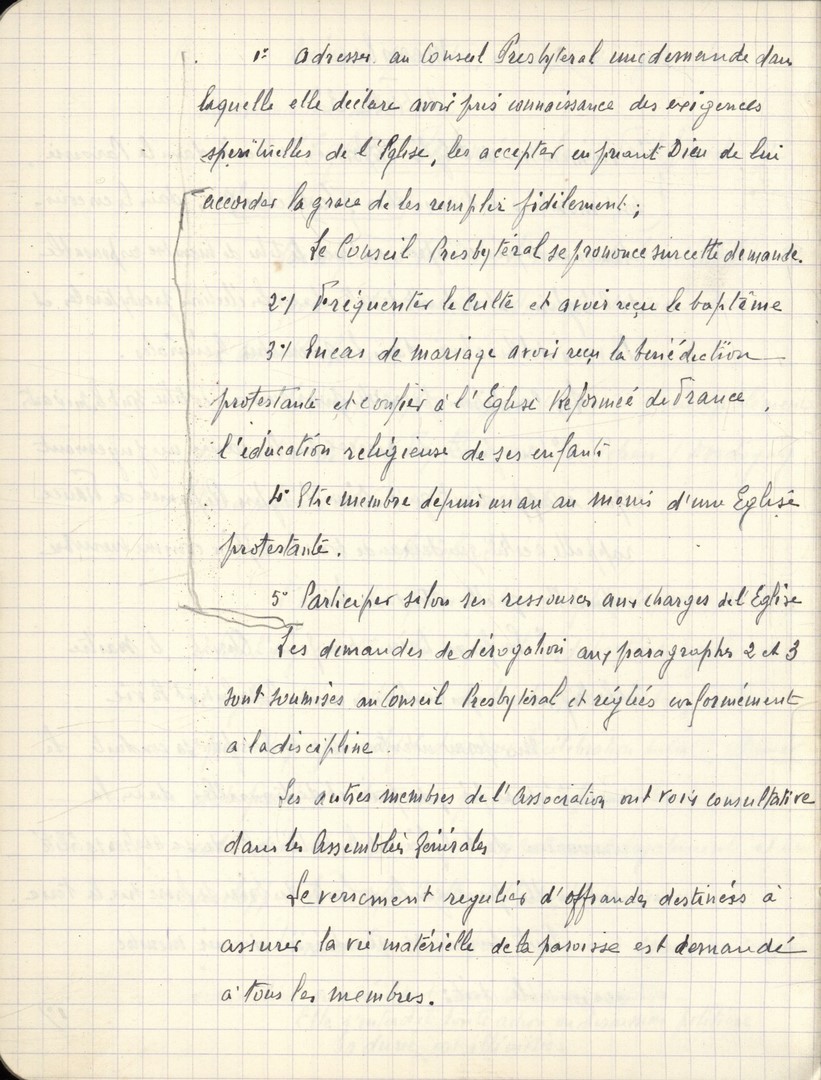 1° Adresser au Conseil Presbytéral une demande dans
laquelle elle déclare avoir pris connaissance des exigences
spirituelles de l'Eglise, les accepter en priant Dieu de lui
accorder la grace de les remplir fidèlement ;
Le Conseil Presbytéral se prononce sur cette demande.
2°/ Fréquenter le Culte et avoir reçu le baptême
3°/ En cas de mariage avoir reçu la bénédiction
protestante et confier à l'Eglise Réformée de France,
l'éducation religieuse de ses enfants
4° Etre membre depuis un an au moins d'une Eglise
protestante.
5° Participer selon ses ressources aux charges de l'Eglise
Les demandes de dérogation aux paragraphes 2 et 3
sont soumises au Conseil Presbytéral et réglées conformément
à la discipline.
Les autres membres de l'Association ont voix consultative
dans les Assemblées Générales
Le versement régulier d'offrandes destinées à
assurer la vie matérielle de la paroisse est demandé
à tous les membres.